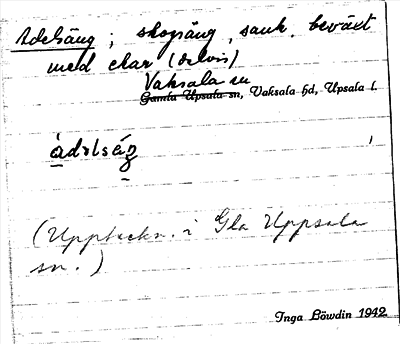 Adelsäng; skogsäng, sank, beväxt
med ekar (delvis)
Vaksala sn
Gamla Upsala sn, Vaksala hd, Upsala l.
ádəlséŋ
(Uppteckn. i Gla Uppsala
sn.)
Inga Löwdin 1942